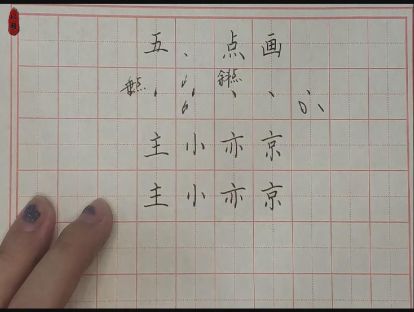 五、点画
垂点 斜点
主小亦京
主小亦京